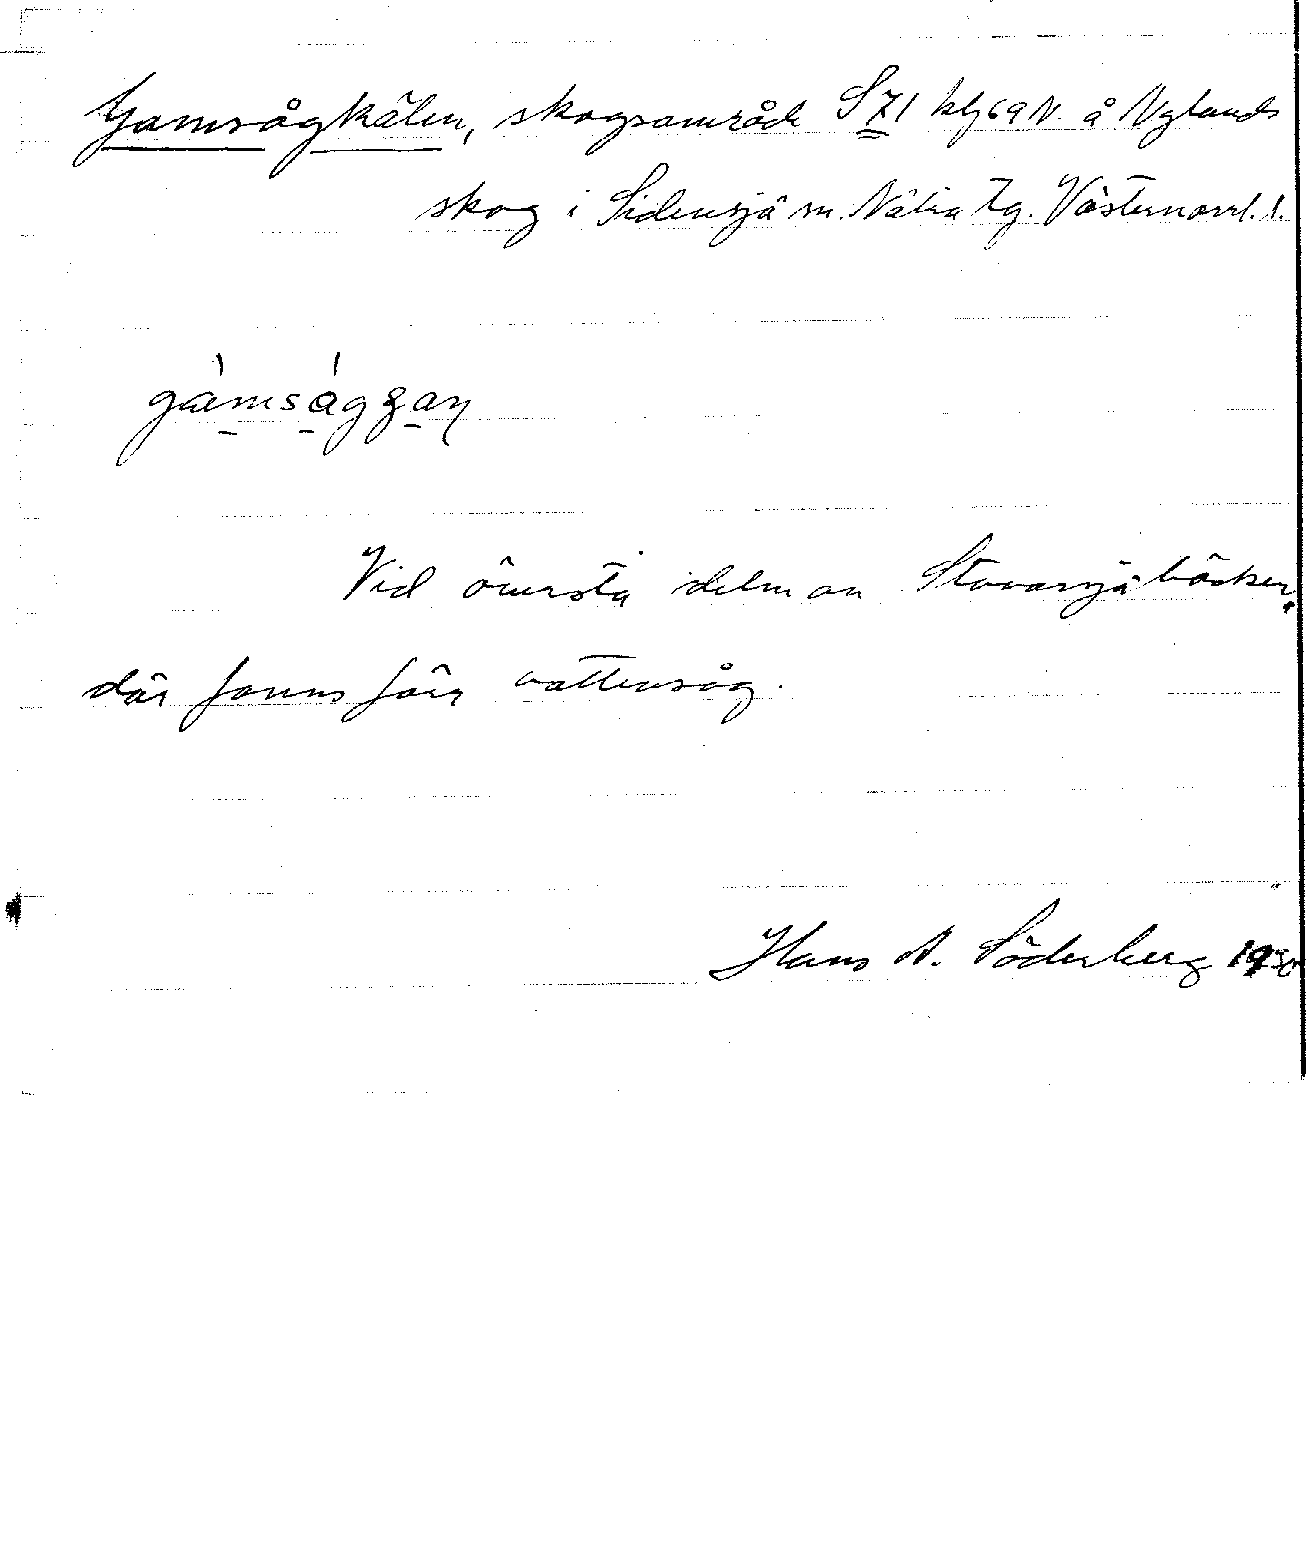 Gamsågkälen, skogsområde S Z1 blz 69 N å Nylands
skog i Sidensjö sn. Nätra tg. Västernorrl. l.
Vid översta delen av Stavarsjöbäcken,
där fanns förr vattensåg.
Hans A. Söderberg 1930